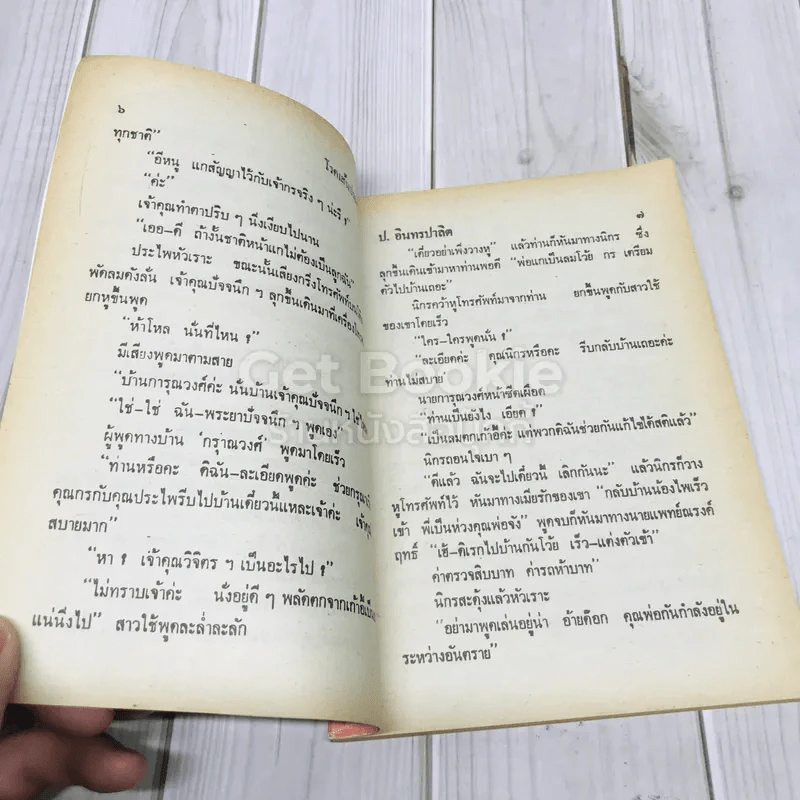 ๖
ทุกชาติ”
“อีหนู แกสัญญาไว้กับเจ้ากรจริง ๆ น่ะรึ ?”
“ค่ะ”
เจ้าคุณทำตาปริบ ๆ นิ่งเงียบไปนาน
“เออ-ดี ถ้างั้นชาติหน้าแกไม่ต้องเป็นลูกฉัน”
ประไพหัวเราะ ขณะนั้นเสียงกริ่งโทรศัพท์
พัดลมดังลั่น เจ้าคุณปัจจนึก ฯ ลุกขึ้นเดินมาที่เครื่อง
ยกหูขึ้นพูด
“ห้าโหล นั่นที่ไหน ?”
มีเสียงพูดมาตามสาย
“บ้านการุณวงศ์ค่ะ นั่นบ้านเจ้าคุณปัจจนึก ฯ
“ใช่-ใช่ ฉัน-พระยาปัจจนึก ฯ พูดเอง”
ผู้พูดทางบ้าน ‘การุณวงศ์’ พูดมาโดยเร็ว
“ท่านหรือคะ ดิฉัน-ละเอียดพูดค่ะ ช่วยกรุณา
คุณกรกับคุณประไพรีบไปบ้านเดี๋ยวนี้แหละเจ้าค่ะ
สบายมาก”
“หา ! เจ้าคุณวิจิตร ฯ เป็นอะไรไป ?”
“ไม่ทราบเจ้าค่ะ นั่งอยู่ดี ๆ พลัดตกจากเก้าอี้
แน่นิ่งไป” สาวใช้พูดละล่ำละลัก
ป. อินทรปาลิต ๗
“เดี๋ยวอย่าเพิ่งวางหู” แล้วท่านก็หันมาทางนิกร ซึ่ง
ลุกขึ้นเดินเข้ามาหาท่านพอดี “พ่อแกเป็นลมโว้ย กร เตรียม
ตัวไปบ้านเถอะ”
นิกรคว้าหูโทรศัพท์มาจากท่าน ยกขึ้นพูดกับสาวใช้
ของเขาโดยเร็ว
“ใคร-ใครพูดนั่น ?”
“ละเอียดค่ะ คุณนิกรหรือคะ รีบกลับบ้านเถอะค่ะ
ท่านไม่สบาย”
นายการุณวงศ์หน้าซีดเผือด
“ท่านเป็นยังไง เอียด ?”
“เป็นลมตกเก้าอี้ค่ะ แต่พวกดิฉันช่วยกันแก้ไขได้สติแล้ว”
นิกรถอนใจเบา ๆ
“ดีแล้ว ฉันจะไปเดี๋ยวนี้ เลิกกันนะ” แล้วนิกรก็วาง
หูโทรศัพท์ไว้ หันมาทางเมียรักของเขา “กลับบ้านน้องไพเร็ว
เข้า พี่เป็นห่วงคุณพ่อจัง” พูดจบก็หันมาทางนายแพทย์ณรงค์
ฤทธิ์ “เฮ้-ดิเรกไปบ้านกันโว้ย เร็ว-แต่งตัวเข้า”
ค่าตรวจสิบบาท ค่ารถห้าบาท”
นิกรสะดุ้งแล้วหัวเราะ
“อย่ามาพูดเล่นอยู่น่า อ้ายด๊อก คุณพ่อกันกำลังอยู่ใน
ระหว่างอันตราย”
Get Bookie